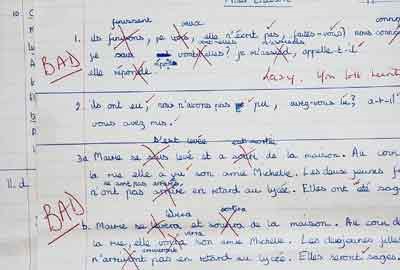 finissent veux conn
1. ils finissons, je vois, elle n'écrit pas, faites-vous? nous conn
sont-elles m'assieds
je sais vont-elles? je m'assied, appelle-t-il
BAD elle réponde Lazy. You both
2. ils ont eu, nous n'avons pas pu, avez-vous lu, a-t-il
vous avez mis.
s'est levée est sortie
3a Marie se suis levé et a sorti de la maison. Au cour
la rue elle a vu son amie Michelle. Les deux jeunes f
ne sont pas arrivées
n'ont pas arrivé en retard au lycée. Elles ont été sage
11.d.
BAD
lèvera sortira
b. Marie se levera et sortira de la maison. Au cour d
verra
la rue, elle voira son amie Michelle. Les deux jeunes filles
n'arriveront pas en retard au lycée. Elles seront sages.